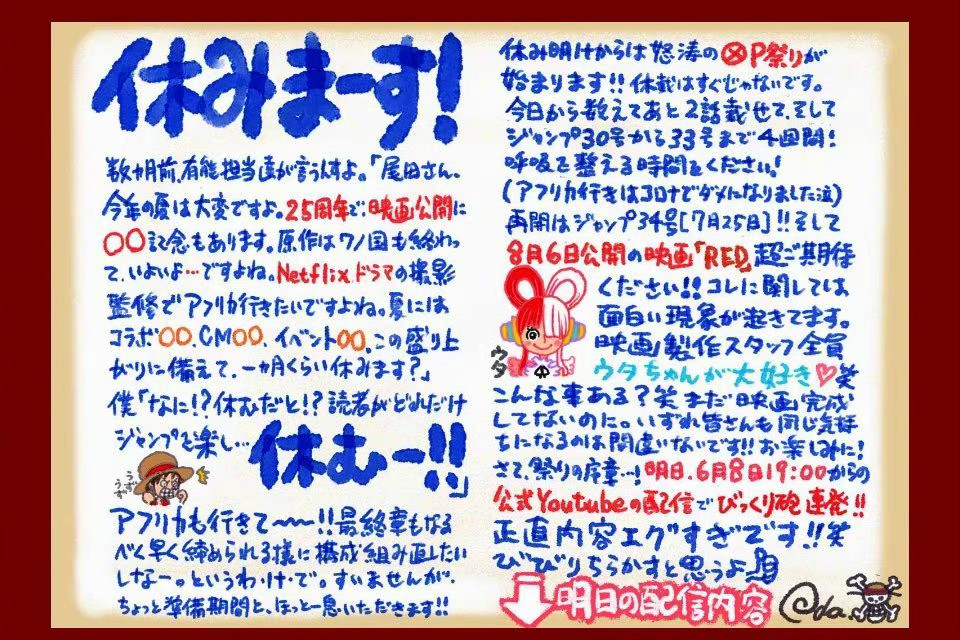 休みまーす!
数ヶ月前、有能担当達が言うんすよ。「尾田さん、
今年の夏は大変ですよ。25周年で、映画公開に
〇〇記念もあります。原作はワノ国も終わっ
て、いよいよ…ですよね。Netflixドラマの撮影
監修でアフリカ行きたいですよね。夏には
コラボ〇〇、CM〇〇、イベント〇〇、この盛り上
がりに備えて、一ヵ月くらい休みます?」
僕「なに!?休むだと!?読者がどれだけ
ジャンプを楽し…休むー!!」
うず
うず
アフリカも行きて〜〜!!最終章もなる
べく早く締められる様に構成組み直したい
しなー。というわ・け・で。すいませんが、
ちょっと準備期間と、ほっと一息いただきます!!
休み明けからは怒涛の㊗P祭りが
始まります!!休載はすぐじゃないです。
今日から数えてあと2話載せて、そして
ジャンプ30号から33号まで4週間!
呼吸を整える時間をください!
(アフリカ行きはコロナでダメになりました泣)
再開はジャンプ34号[7月25日]!!そして
8月6日公開の映画「RED」超ご期待
ください!!コレに関しては
面白い現象が起きてます。
映画製作スタッフ全員
ウタちゃんが大好き♡笑
ウタ
こんな事ある?笑 まだ映画完成
してないのに。いずれ皆さんも同じ気持
ちになるのは間違いないです!!お楽しみに!
さて、祭りの序章…!明日、6月8日19:00からの
公式Youtubeの配信でびっくり砲連発!!
正直内容エグすぎです!!笑
びびりちらかすと思うよ
明日の配信内容
Oda.